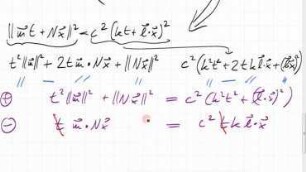 ‖m⃗t + Nx⃗‖² = c²(kt + l⃗·x⃗)²
t²‖m⃗‖² + 2t m⃗·Nx⃗ + ‖Nx⃗‖² c²(k²t² + 2tk l⃗·x⃗ + (l⃗·x⃗)²)
⊕ t²‖m⃗‖² + ‖Nx⃗‖² = c²(k²t² + (l⃗·x⃗)²)
⊖ t m⃗·Nx⃗ = c² t k l⃗·x⃗